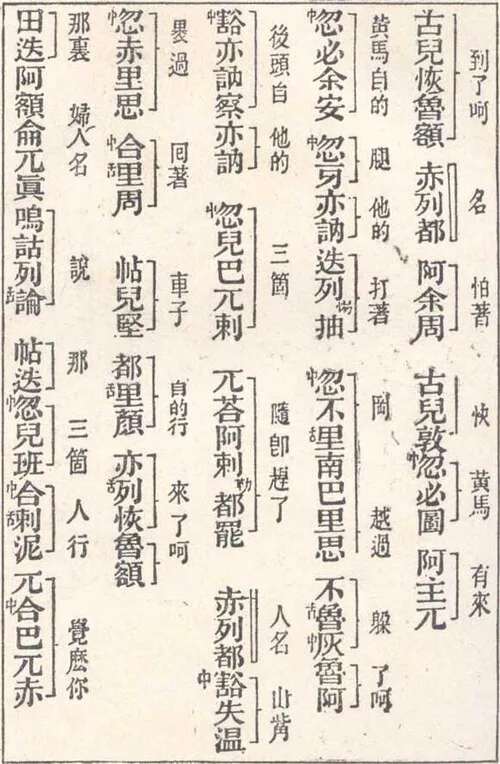 到了呵 名 怕著 快 黃馬 有來
古兒恢魯額 赤列都 阿余周 古兒敦 中忽必圖 阿主兀
黃馬自的 腿 他的 打著 岡 越過 躱 了呵
中忽必余安 中忽牙亦訥 迭列惕抽 中忽不舌里南巴里思 不舌魯中灰魯阿
後頭自 他的 三箇 隨卽趕了 人名 山觜
中豁亦訥察亦訥 中忽兒巴兀剌 兀荅阿剌勒都罷 赤列都 中豁失溫
疊過 囘著 車子 自的行 來了呵
中忽赤里思 中合舌里周 帖兒堅 都舌里顏 亦舌列恢魯額
那裏 婦人名 說 那 三箇 人行 覺麽你
田迭 阿額侖兀眞 嗚詁列舌論 帖迭 中忽兒班 中合舌剌泥 兀中合巴兀赤